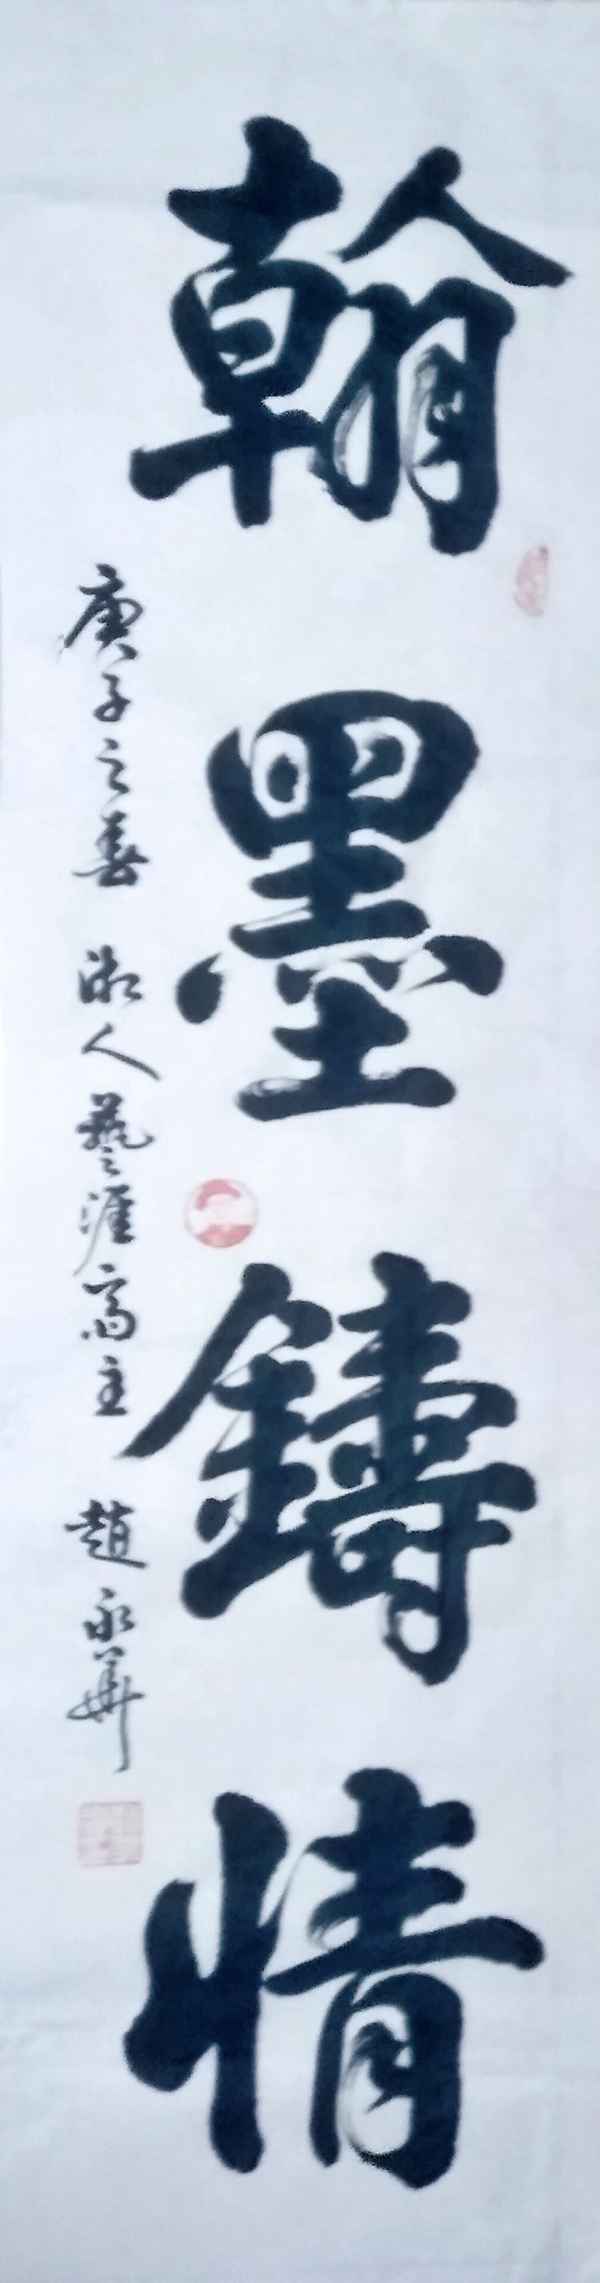 翰墨鑄情
庚子之春 湘人藝涯齋主 趙永華